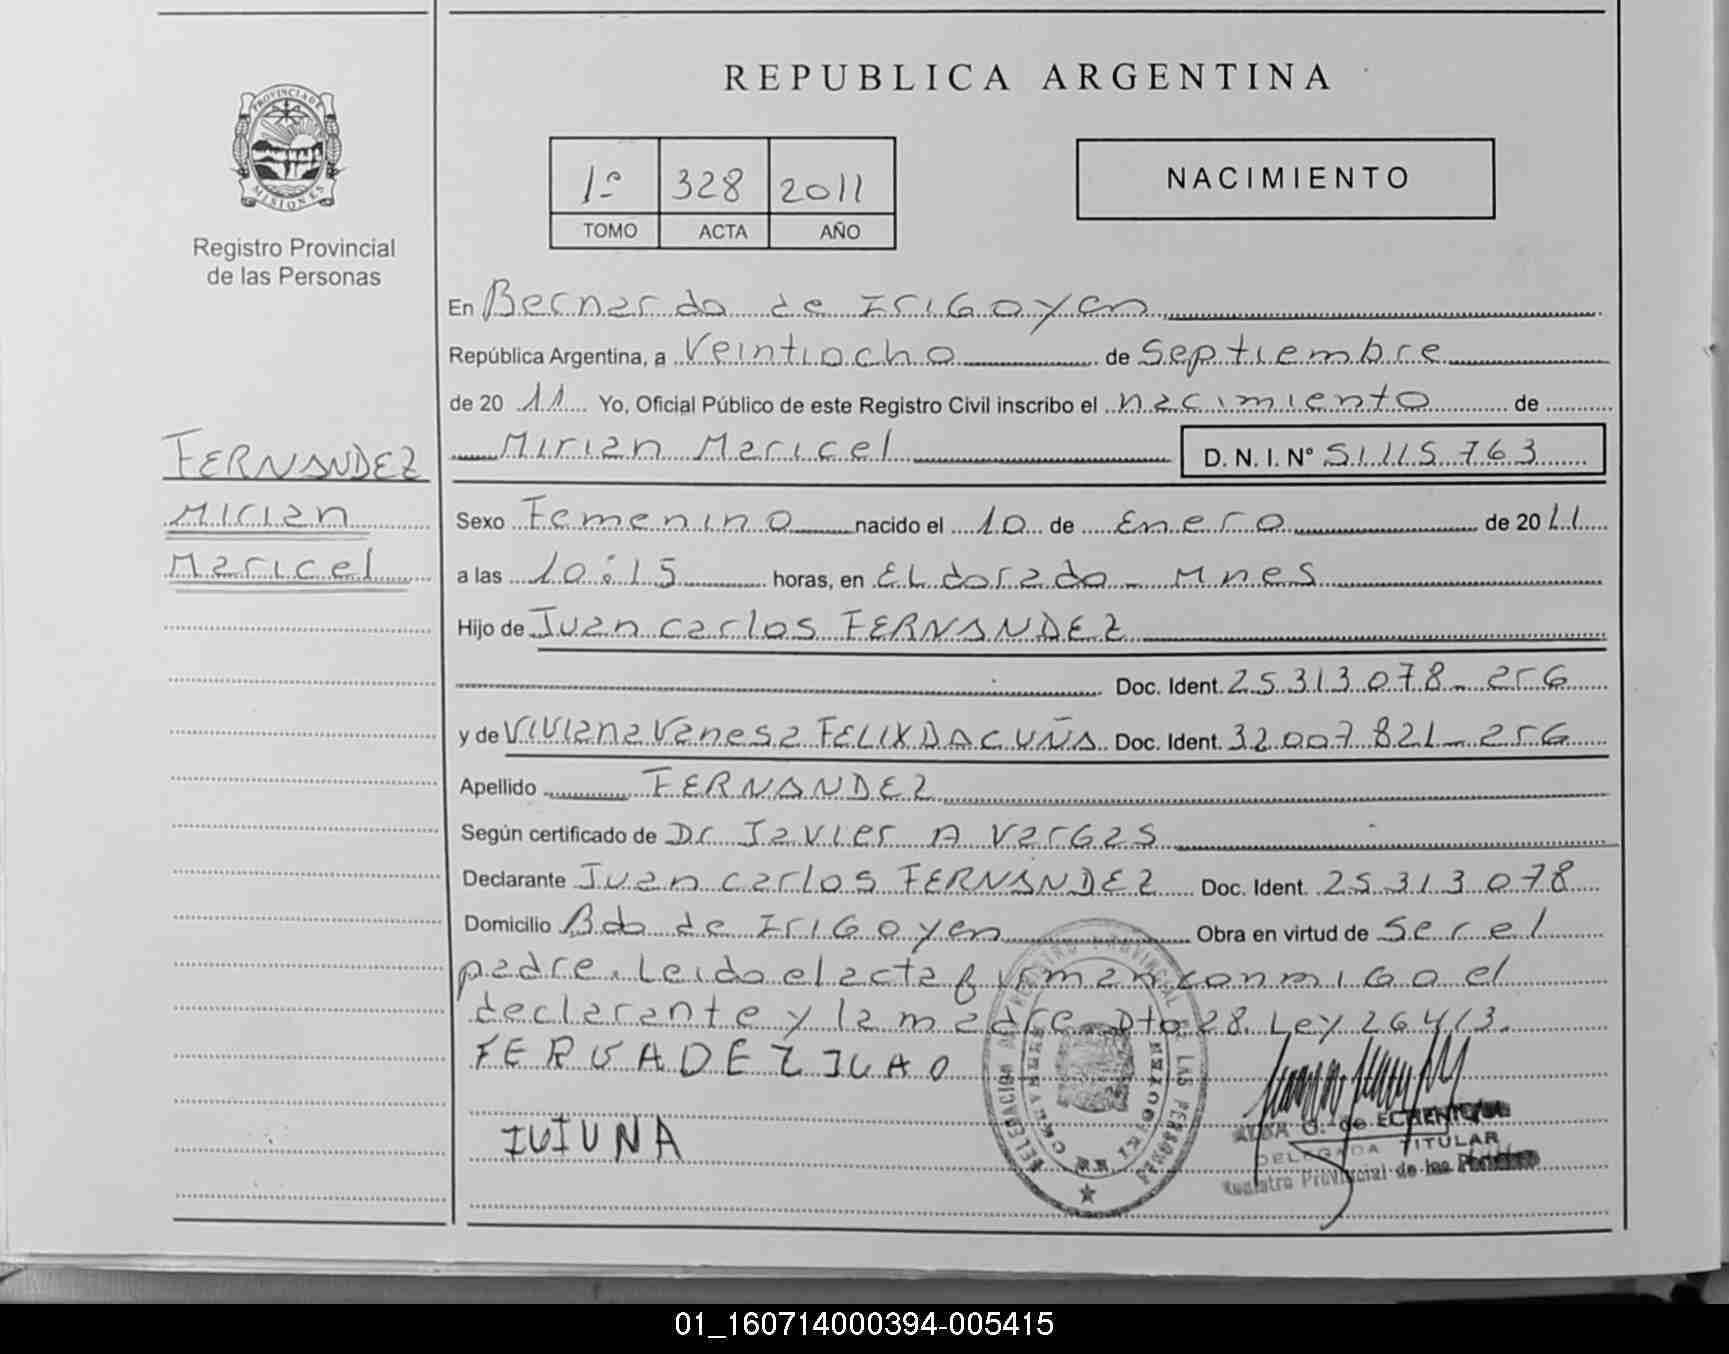 REPUBLICA ARGENTINA
PROVINCIA DE MISIONES
Registro Provincial
de las Personas
1º 328 2011
TOMO ACTA AÑO
NACIMIENTO
En Bernardo de IriGoyen
República Argentina, a Veintiocho de Septiembre
de 20 11 Yo, Oficial Público de este Registro Civil inscribo el nacimiento de
Mirian Maricel D. N. I. N° 51.115.763
FERNANDEZ
Mirian
Maricel
Sexo Femenino nacido el 10 de Enero de 20 11
a las 10:15 horas, en ELdorado - Mnes
Hijo de Juan carlos FERNANDEZ
Doc. Ident. 25.313.078 - arG
y de Viviana Vanesa FELIX DACUÑA Doc. Ident. 32.007.821 - arG
Apellido FERNANDEZ
Según certificado de Dr. Javier A VarGas
Declarante Juan carlos FERNANDEZ Doc. Ident. 25.313.078
Domicilio Bdo de IriGoyen Obra en virtud de Ser el
padre. Leido el acta firman conmiGo el
declarante y la madre. Dto 28. Ley 26413.
FERUADEZ JUAO
IUIUNA
DELEGADA TITULAR
Registro Provincial de las
01_160714000394-005415